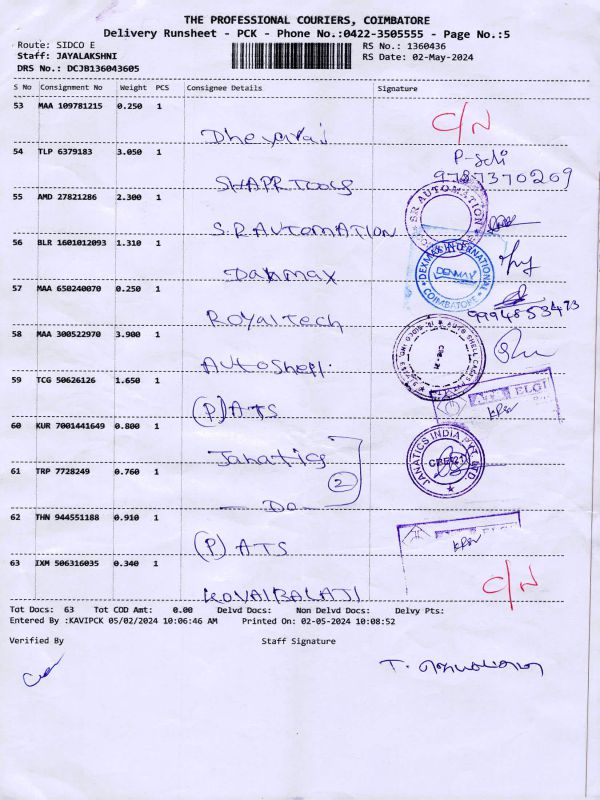 THE PROFESSIONAL COURIERS, COIMBATORE
Delivery Runsheet - PCK - Phone No.:0422-3505555 - Page No.:5
Route: SIDCO E
RS No.: 1360436
Staff: JAYALAKSHNI
RS Date: 02-May-2024
DRS No.: DCJB136043605
S No Consignment No Weight PCS Consignee Details Signature
53 MAA 109781215 0.250 1
C/N
54 TLP 6379183 3.050 1
SHARP TOOLS
9787370209
55 AMD 27821286 2.300 1
S.R AUTOMATION
SR AUTOMATION
56 BLR 1601012093 1.310 1
Dakmax
DEKMAX INTERNATIONAL
COIMBATORE
57 MAA 650240070 0.250 1
Royal Tech
9994853473
58 MAA 300522970 3.900 1
AutoShell
59 TCG 50626126 1.650 1
(P) ATS
ELGI
60 KUR 7001441649 0.800 1
Janatics
JANATICS INDIA PVT LTD
61 TRP 7728249 0.760 1
- Do -
2
62 THN 944551188 0.910 1
(P) ATS
63 IXM 506316035 0.340 1
KOVAI BALAJI
C/N
Tot Docs: 63 Tot COD Amt: 0.00 Delvd Docs: Non Delvd Docs: Delvy Pts:
Entered By :KAVIPCK 05/02/2024 10:06:46 AM Printed On: 02-05-2024 10:08:52
Verified By Staff Signature